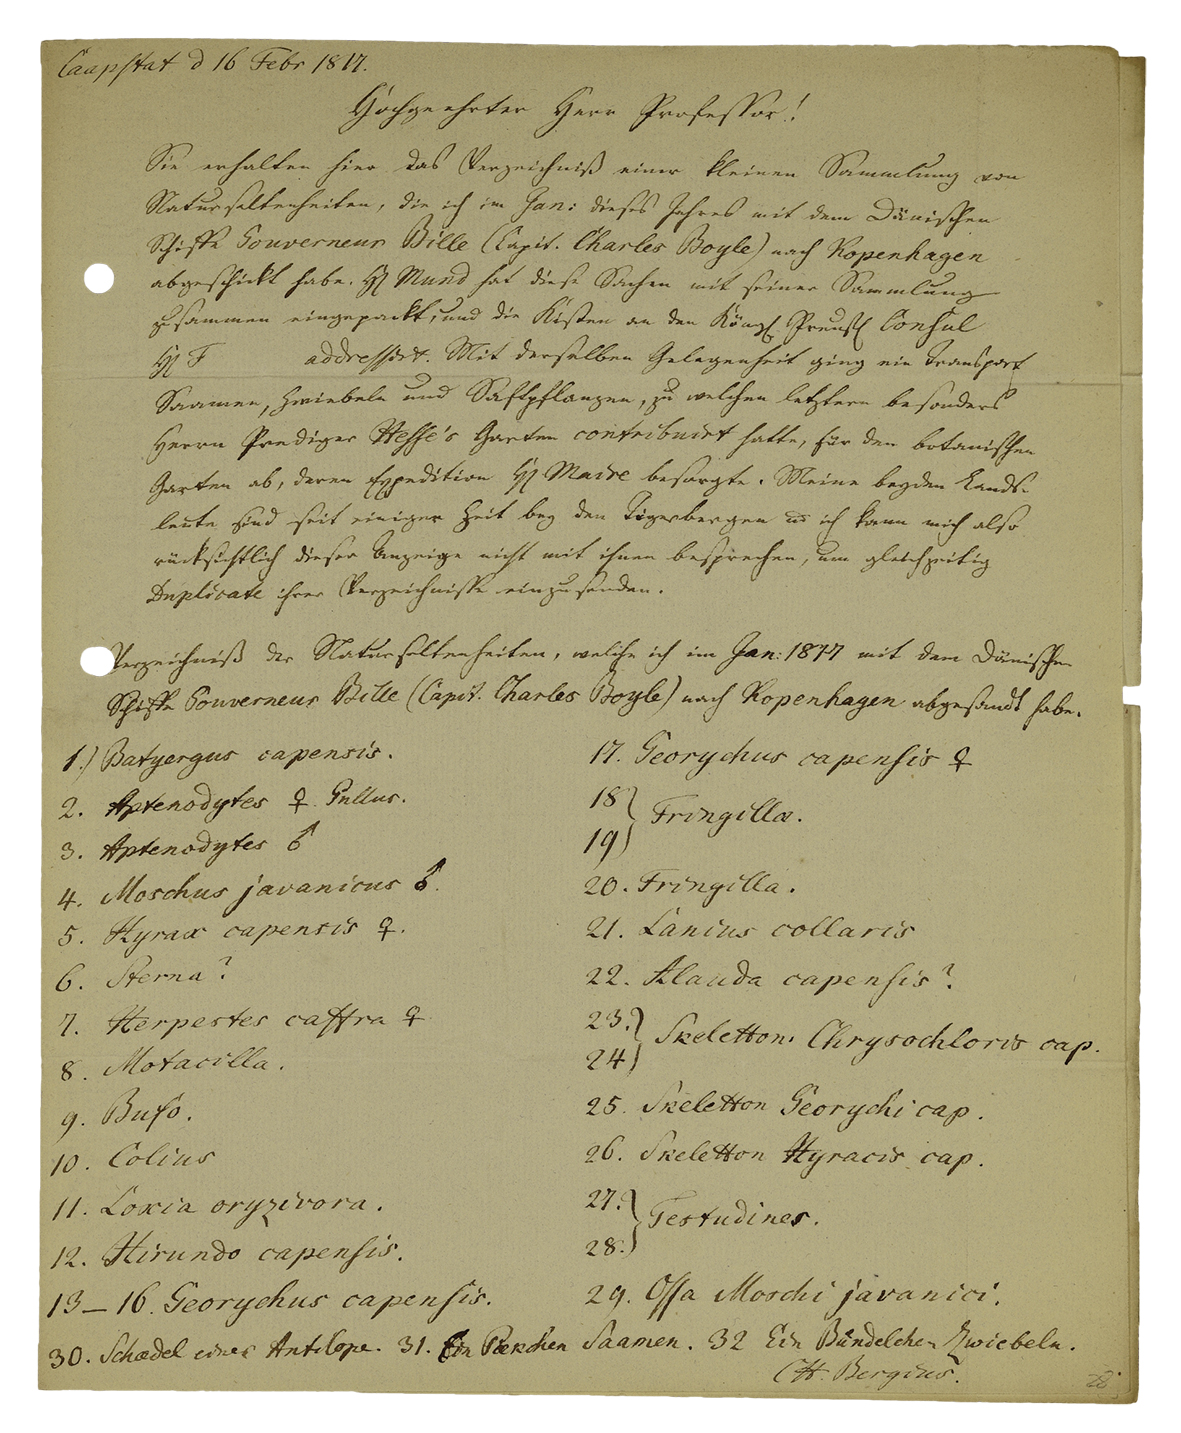 Caapstat d 16 Febr 1817.
Hochgeehrter Herr Professor!
Sie erhalten hier das Verzeichniß einer kleinen Sammlung von
Naturseltenheiten, die ich im Jan: dieses Jahres mit dem Dänischen
Schiffe Gouverneur Bille (Capit. Charles Boyle) nach Kopenhagen
abgeschickt habe. H Mund hat diese Sachen mit seiner Sammlung
zusammen eingepackt, und die Kisten an den Königl. Preuß. Consul
H F addressirt. Mit derselben Gelegenheit ging ein Transport
Saamen, Zwiebeln und Saftpflanzen, zu welchen letztern besonders
Herrn Prediger Hesse's Garten contribuirt hatte, für den botanischen
Garten ab, deren Expedition H Maire besorgte. Meine beyden Lands-
leute sind seit einiger Zeit bey den Tigerbergen u ich kann mich also
rücksichtlich dieser Anzeige nicht mit ihnen besprechen, um gleichzeitig
Duplicate ihrer Verzeichnisse einzusenden.
Verzeichniß der Naturseltenheiten, welche ich im Jan: 1817 mit dem Dänischen
Schiffe Gouverneur Bille (Capit. Charles Boyle) nach Kopenhagen abgesandt habe.
1.) Batyergus capensis.
2. Aptenodytes ♀ Pullus.
3. Aptenodytes ♂
4. Moschus javanicus ♂.
5. Hyrax capensis ♀.
6. Sterna?
7. Herpestes caffra ♀
8. Motacilla.
9. Bufo.
10. Colius
11. Loxia oryzivora.
12. Hirundo capensis.
13–16. Georychus capensis.
17. Georychus capensis ♀
18
19} Fringillæ.
20. Fringilla.
21. Lanius collaris
22. Alauda capensis?
23.
24} Skeletton. Chrysochloris cap.
25. Skeletton Georychi cap.
26. Skeletton Hyracis cap.
27.
28.} Testudines.
29. Ossa Moschi javanici.
30. Schædel einer Antilope. 31. Ein Pækchen Saamen. 32 Ein Bündelchen Zwiebeln.
CH. Bergius.
28